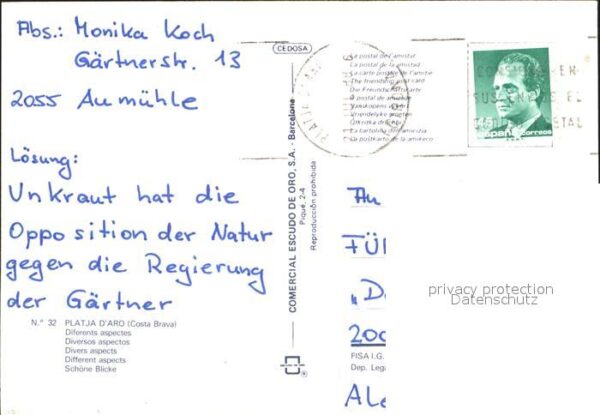 Abs.: Monika Koch
Gärtnerstr. 13
2055 Aumühle
Lösung:
Unkraut hat die
Opposition der Natur
gegen die Regierung
der Gärtner
N.º 32 PLATJA D'ARO (Costa Brava)
Diferents aspectes
Diversos aspectos
Divers aspects
Different aspects
Schöne Blicke
CEDOSA
COMERCIAL ESCUDO DE ORO, S.A. - Barcelona
Piqué, 2-4
Reproducción prohibida
La postal de l'amistat
La postal de la amistad
La carte postale de l'amitié
The friendship postcard
Die Freundschaftskarte
La cartolina dell'amicizia
La postkarto de la amikeco
PLATJA
45
españa correos
SUS
EL
An
FÜ
„D
200
FISA I.G.
Dep. Lega
Ale
privacy protection
Datenschutz